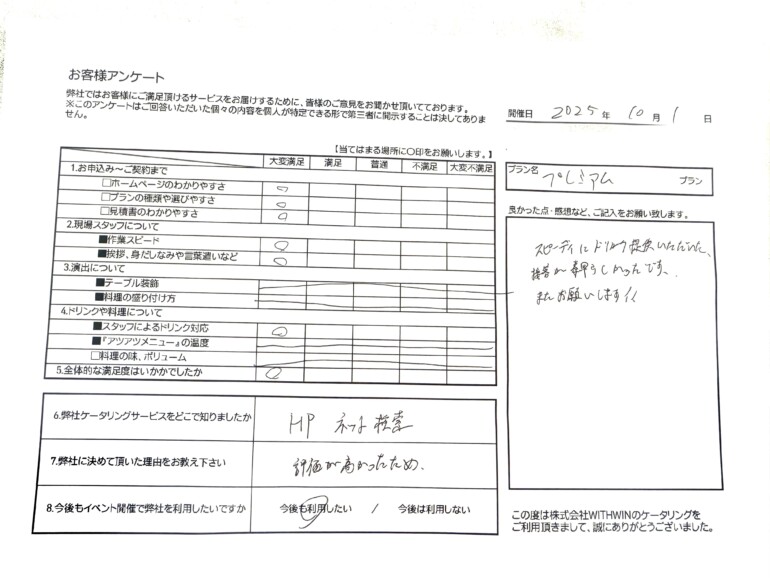 お客様アンケート
弊社ではお客様にご満足頂けるサービスをお届けするために、皆様のご意見をお聞かせ頂いてております。
※このアンケートはご回答いただいた個々の内容を個人が特定できる形で第三者に開示することは決してありま
せん。
開催日 2025 年 10 月 1 日
【当てはまる場所に〇印をお願いします。】
大変満足 満足 普通 不満足 大変不満足
1.お申込み～ご契約まで
□ホームページのわかりやすさ
□プランの種類や選びやすさ
□見積書のわかりやすさ
2.現場スタッフについて
■作業スピード
■挨拶、身だしなみや言葉遣いなど
3.演出について
■テーブル装飾
■料理の盛り付け方
4.ドリンクや料理について
■スタッフによるドリンク対応
■『アツアツメニュー』の温度
□料理の味、ボリューム
5.全体的な満足度はいかかでしたか
プラン名 プレミアム プラン
良かった点・感想など、ご記入をお願い致します。
スピーディにドリンク提供いただいた、
接客が素晴らしかったです。
またお願いします!!
6.弊社ケータリングサービスをどこで知りましたか HP ネット検索
7.弊社に決めて頂いた理由をお教え下さい 評価が高かったため、
8.今後もイベント開催で弊社を利用したいですか 今後も利用したい / 今後は利用しない
この度は株式会社WITHWINのケータリングを
ご利用頂きまして、誠にありがとうございました。